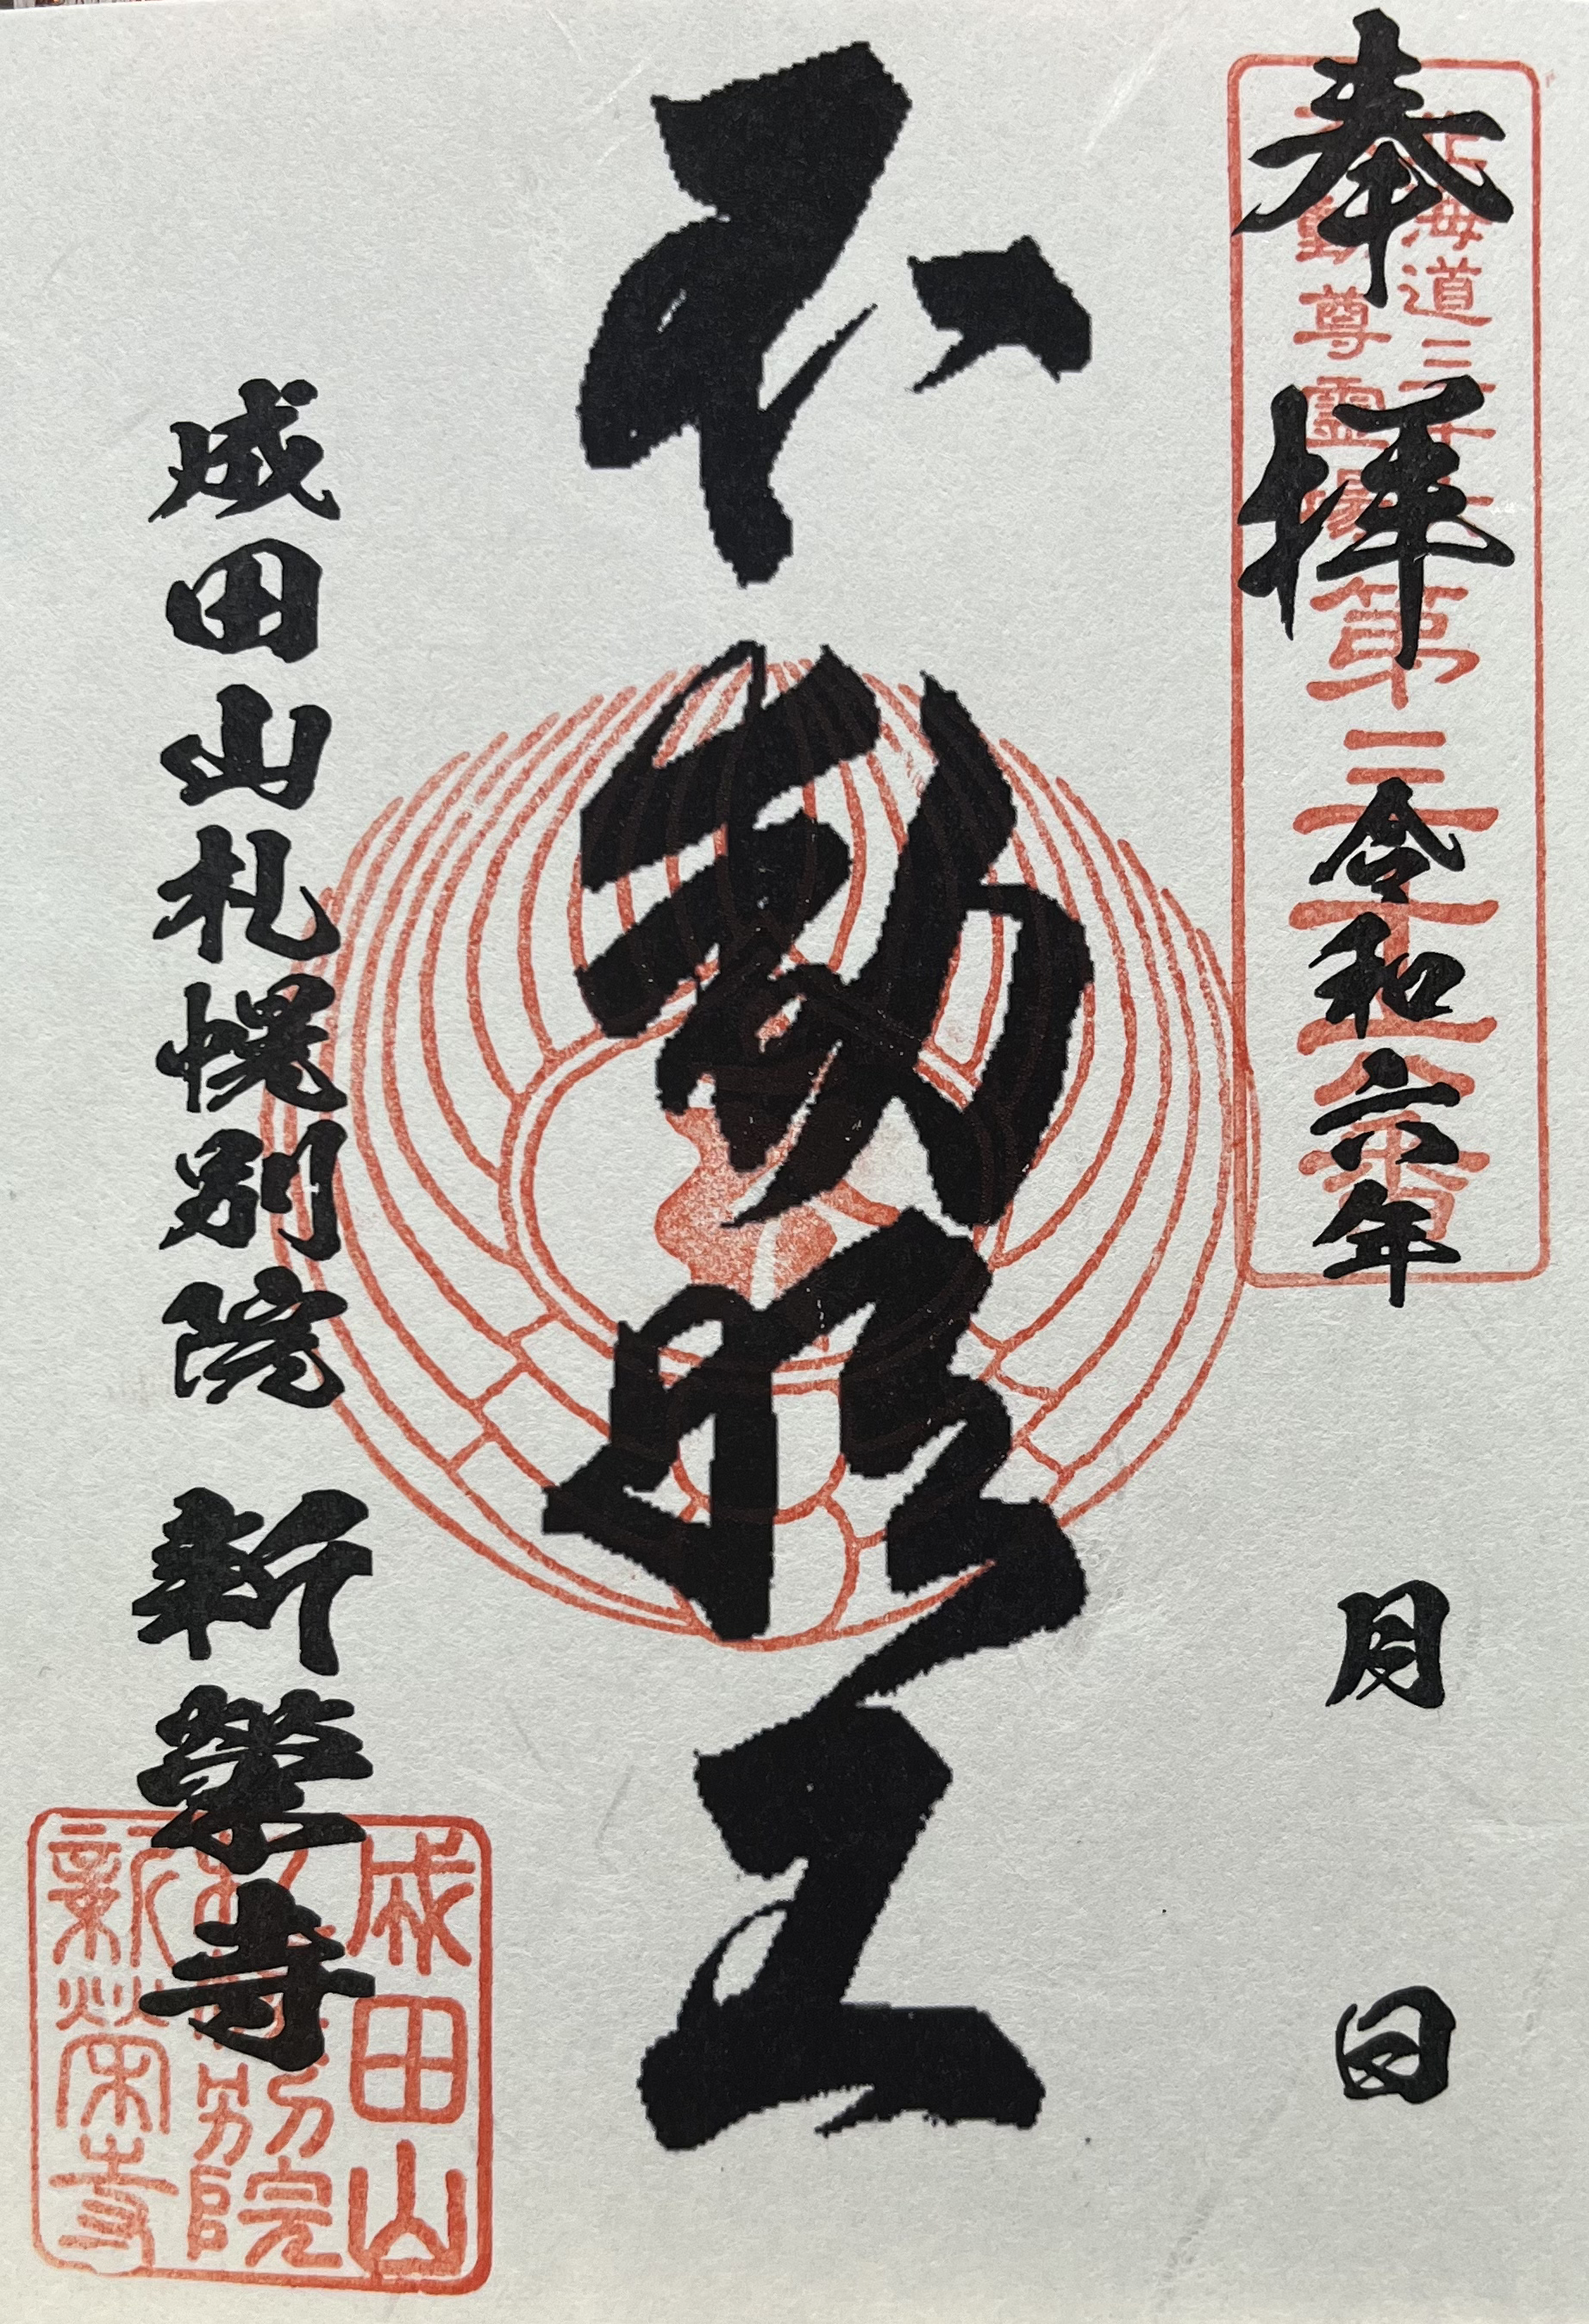 奉拝
北海道三十六
不動尊霊場
第
番
令和六年　月　日
不動明王
成田山札幌別院　新榮寺
成田山
札幌別院
新栄寺